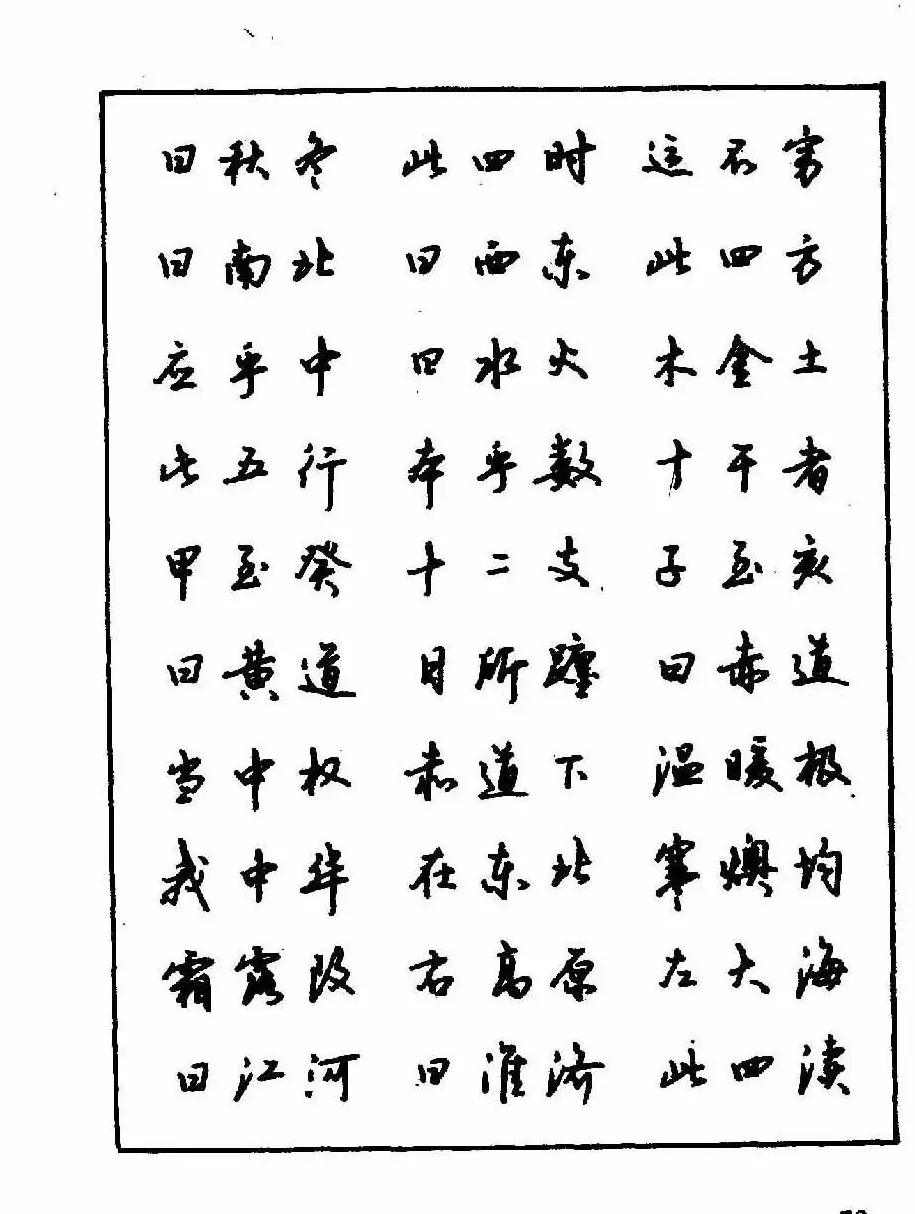 曰秋冬 此四时 运不穷
曰南北 曰西东 此四方
应乎中 曰水火 木金土
此五行 本乎数 十干者
甲至癸 十二支 子至亥
曰黄道 日所躔 曰赤道
当中权 赤道下 温暖极
我中华 在东北 寒燠均
霜露改 右高原 左大海
曰江河 曰淮济 此四渎